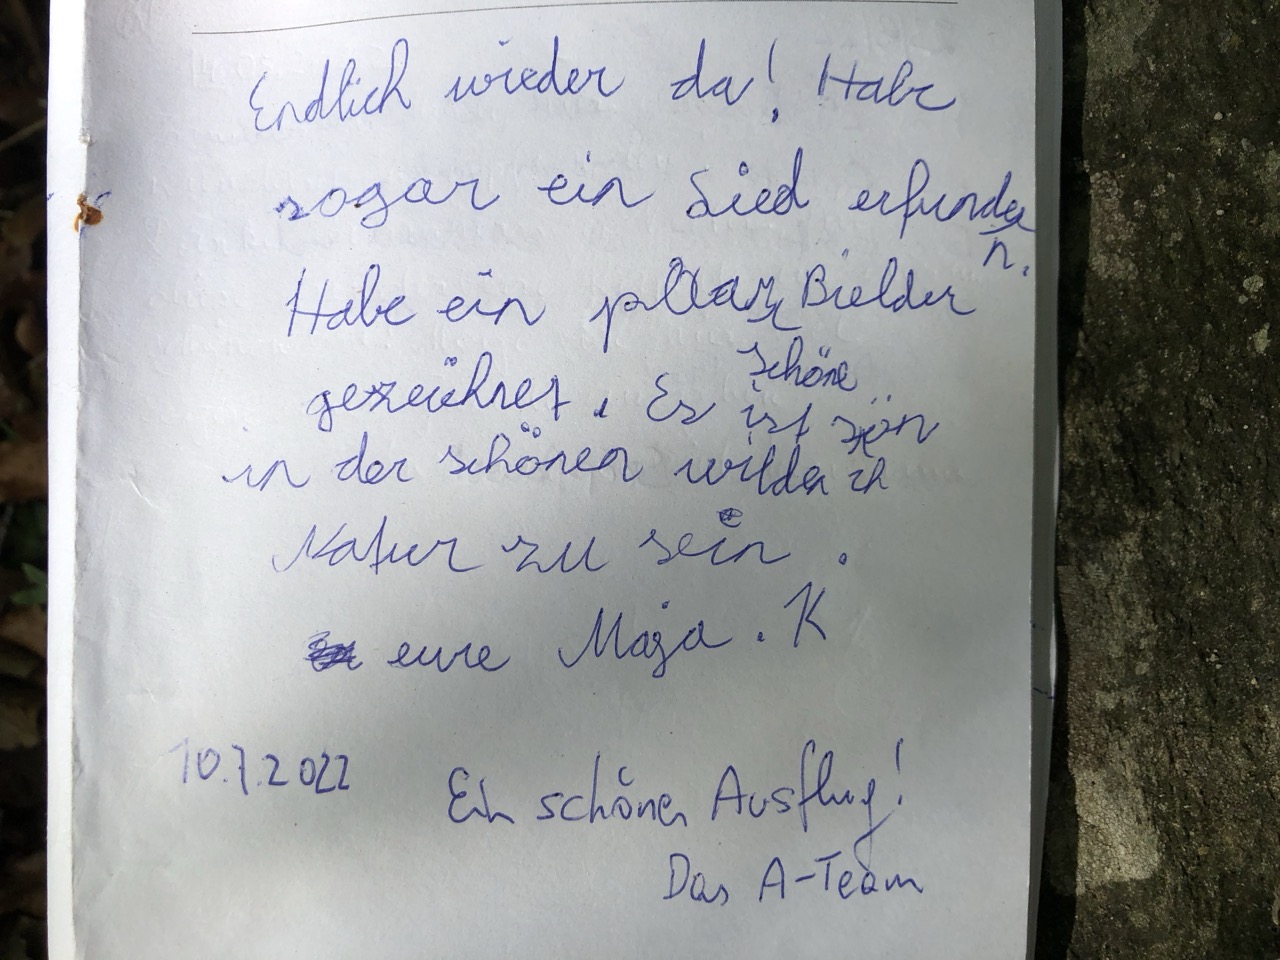 Endlich wieder da! Habe
sogar ein Lied erfunden.
Habe ein paar Bielder
gezeichnet. Es ist schön
in der schönen wilden
Natur zu sein.
eure Maja. K
10.7.2022
Ein schöner Ausflug!
Das A-Team